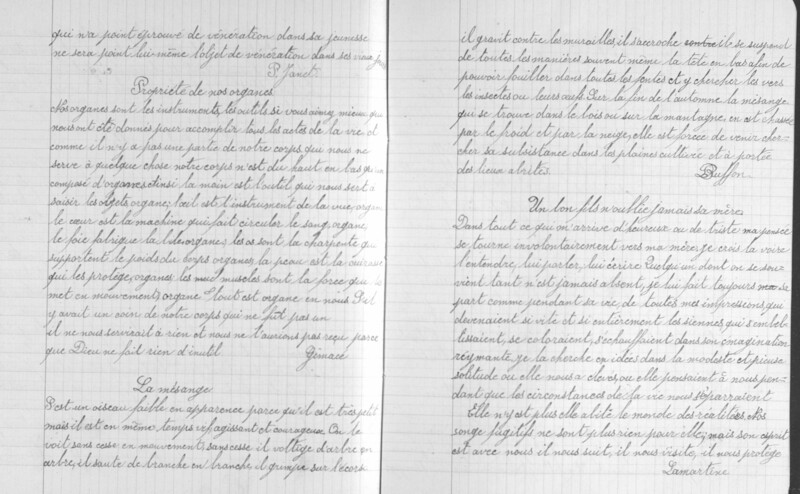 qui n'a point éprouvé de vénération dans sa jeunesse
ne sera point lui-même l'objet de vénération dans ses vieux jours
P. Janet
Propriété de nos organes
Nos organes sont les instruments, les outils si vous aimez mieux, qui
nous ont été donnés pour accomplir tous les actes de la vie et
comme il n'y a pas une partie de notre corps qui nous ne
serve à quelque chose notre corps n'est du haut en bas qu'un
composé d'organes. Ainsi la main est l'outil qui nous sert à
saisir les objets organe; l'œil est l'instrument de la vue, organe
le cœur est la machine qui fait circuler le sang, organe,
le foie fabrique la bile organe; les os sont la charpente qui
supportent le poids du corps organes, la peau est la cuirasse
qui les protège, organes les muscles sont la force qui le
met en mouvement, organe. Tout est organe en nous S'il
y avait un coin de notre corps qui ne fut pas un
il ne nous servirait à rien et nous ne l'aurions pas reçu parce
que Dieu ne fait rien d'inutil
La mésange
C'est un oiseau faible en apparence parce qu'il est très petit
mais il est en même temps vif agissant et courageux. On le
voit sans cesse en mouvement; sans cesse il voltige d'arbre en
arbre, il saute de branche en branche il grimpe sur l'écorce
il gravit contre les murailles, il s'accroche contre il se suspend
de toutes les manières souvent même la tête en bas afin de
pouvoir fouiller dans toutes les fentes et y chercher les vers
les insectes ou leurs œufs. Sur la fin de l'automne la mésange
qui se trouve dans le bois ou sur la montagne en est chassée
par le froid et par la neige, elle est forcée de venir cher-
cher sa subsistance dans les plaines cultivé et à portée
des lieux abrités.
Buffon
Un bon fils n'oublie jamais sa mère.
Dans tout ce qui m'arrive d'heureux ou de triste ma pensée
se tourne involontairement vers ma mère, je crois la voire
l'entendre, lui parler, lui écrire Quelqu'un dont on se sou-
vient tant n'est jamais absent, je lui fait toujours sa
part comme pendant sa vie, de toutes mes impressions qui
devenaient si vite et si entièrement les siennes qui s'embel-
lissaient, se coloraient, s'échauffaient dans son imagination
je la cherche en idées dans la modeste et pieuse
solitude ou elle nous a élevés, ou elle pensaient à nous pen-
dant que les circonstances de la vie nous séparraiont
Elle n'y est plus elle a quitté le monde des réalités. Nos
songe fugitifs ne sont plus rien pour elle; mais son esprit
est avec nous il nous suit, il nous visite, il nous protège
Lamartine